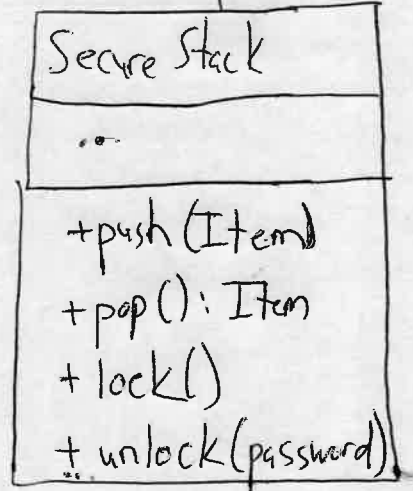 Secure Stack
...
+push(Item)
+pop(): Item
+ lock()
+ unlock(password)